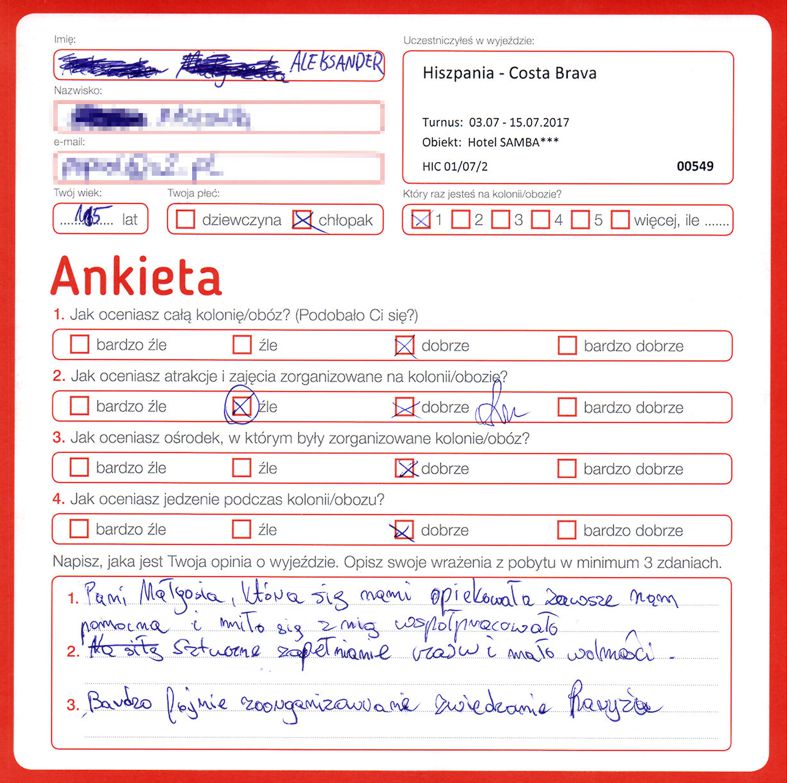 Imię:
ALEKSANDER
Nazwisko:
e-mail:
Twój wiek:
15 lat
Twoja płeć:
dziewczyna chłopak
Uczestniczyłeś w wyjeździe:
Hiszpania - Costa Brava
Turnus: 03.07 - 15.07.2017
Obiekt: Hotel SAMBA***
HIC 01/07/2 00549
Który raz jesteś na kolonii/obozie?
1 2 3 4 5 więcej, ile .......
Ankieta
1. Jak oceniasz całą kolonię/obóz? (Podobało Ci się?)
bardzo źle źle dobrze bardzo dobrze
2. Jak oceniasz atrakcje i zajęcia zorganizowane na kolonii/obozie?
bardzo źle źle dobrze bardzo dobrze
3. Jak oceniasz ośrodek, w którym były zorganizowane kolonie/obóz?
bardzo źle źle dobrze bardzo dobrze
4. Jak oceniasz jedzenie podczas kolonii/obozu?
bardzo źle źle dobrze bardzo dobrze
Napisz, jaka jest Twoja opinia o wyjeździe. Opisz swoje wrażenia z pobytu w minimum 3 zdaniach.
1. Pani Małgosia, która się nami opiekowała zawsze nam
pomocna i miło się z nią współpracowało
2. Na siłę Sztuczne zapełnianie czasu i mało wolności.
3. Bardzo fajnie zoorganizowane zwiedzanie Paryża